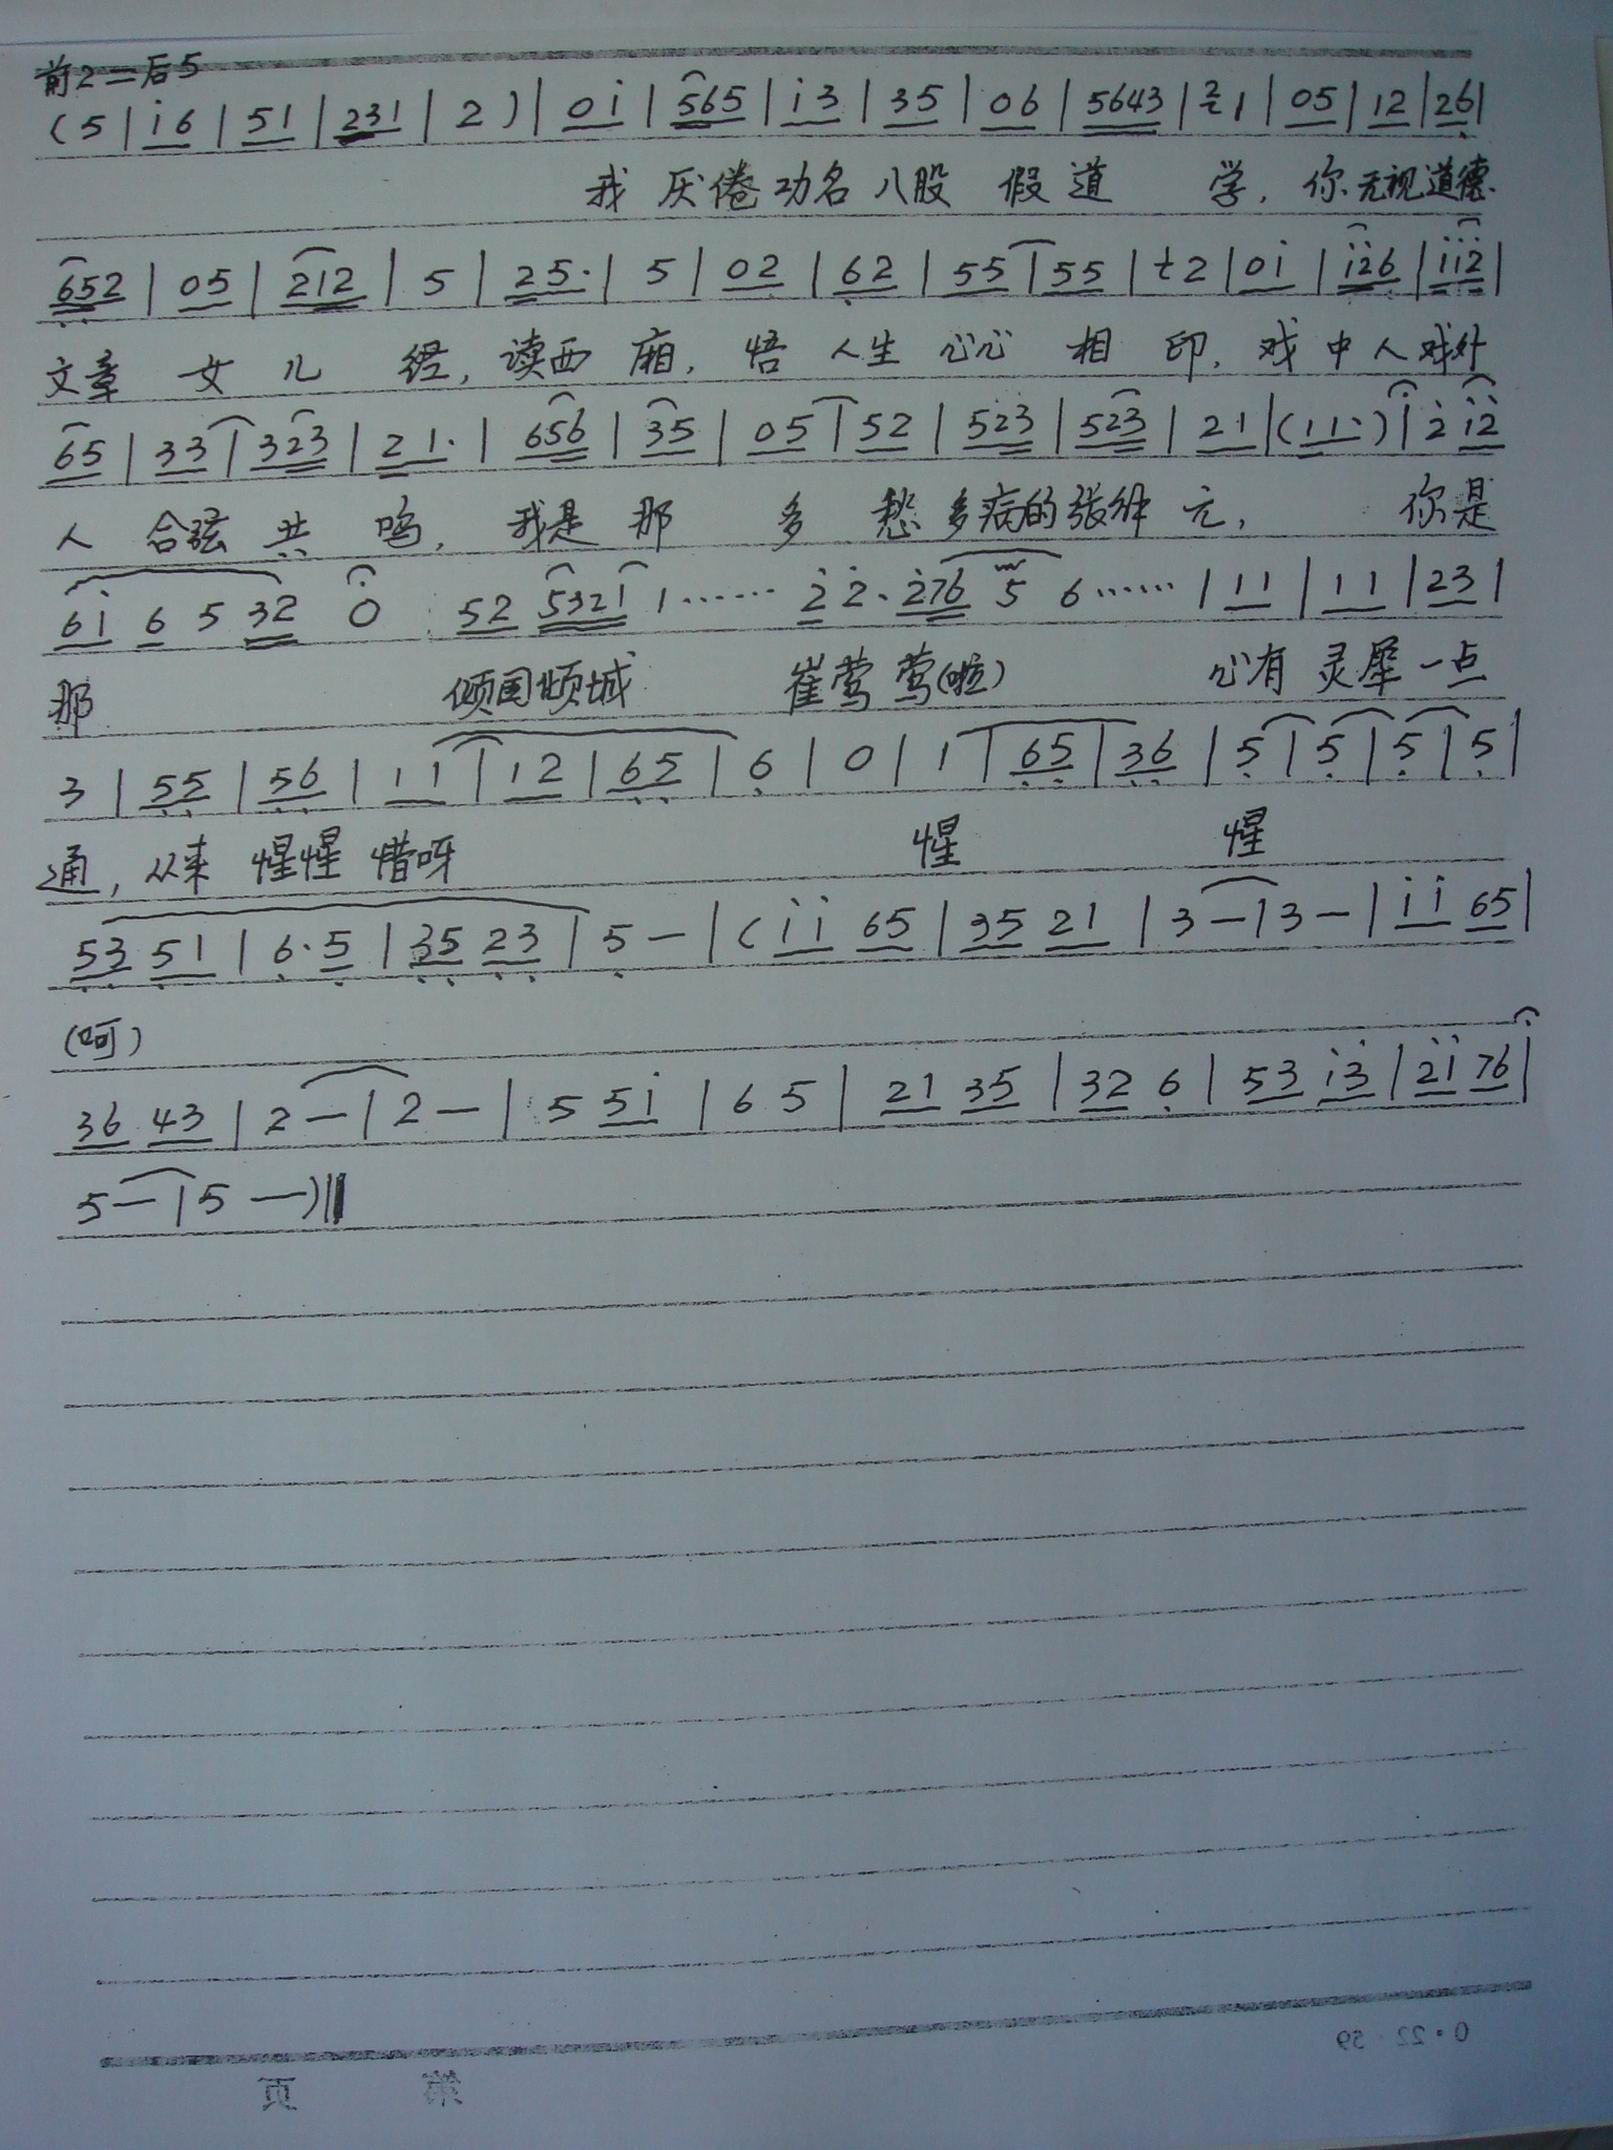 前2=后5
(5|i6|51|231|2)|0i|565|i3|35|06|5643|21|05|12|26|
我 厌倦功名八股 假道 学,你无视道德
652|05|212|5|25·|5|02|62|55|55|t2|0i|i26|ii2|
文章 女儿 经,读西厢,悟人生心心相印,戏中人戏外
65|33|323|21·|656|35|05|52|523|523|21|(11·)|2 i2
人合弦共鸣,我是那多愁多病的张解元,你是
6i 6 5 32 0 52 5321 1…… 2 2·276 5 6……|11|11|23|
那 倾国倾城 崔莺莺(啦) 心有灵犀一点
3|55|56|11|12|65|6|0|1|65|36|5|5|5|5|
通,从来惺惺惜呀 惺 惺
53 51|6·5|35 23|5—|(ii 65|35 21|3—|3—|ii 65|
(呵)
36 43|2—|2—|5 5i|6 5|21 35|32 6|53 i3|2i 76|
5—|5—)‖
0·22 59
第 页